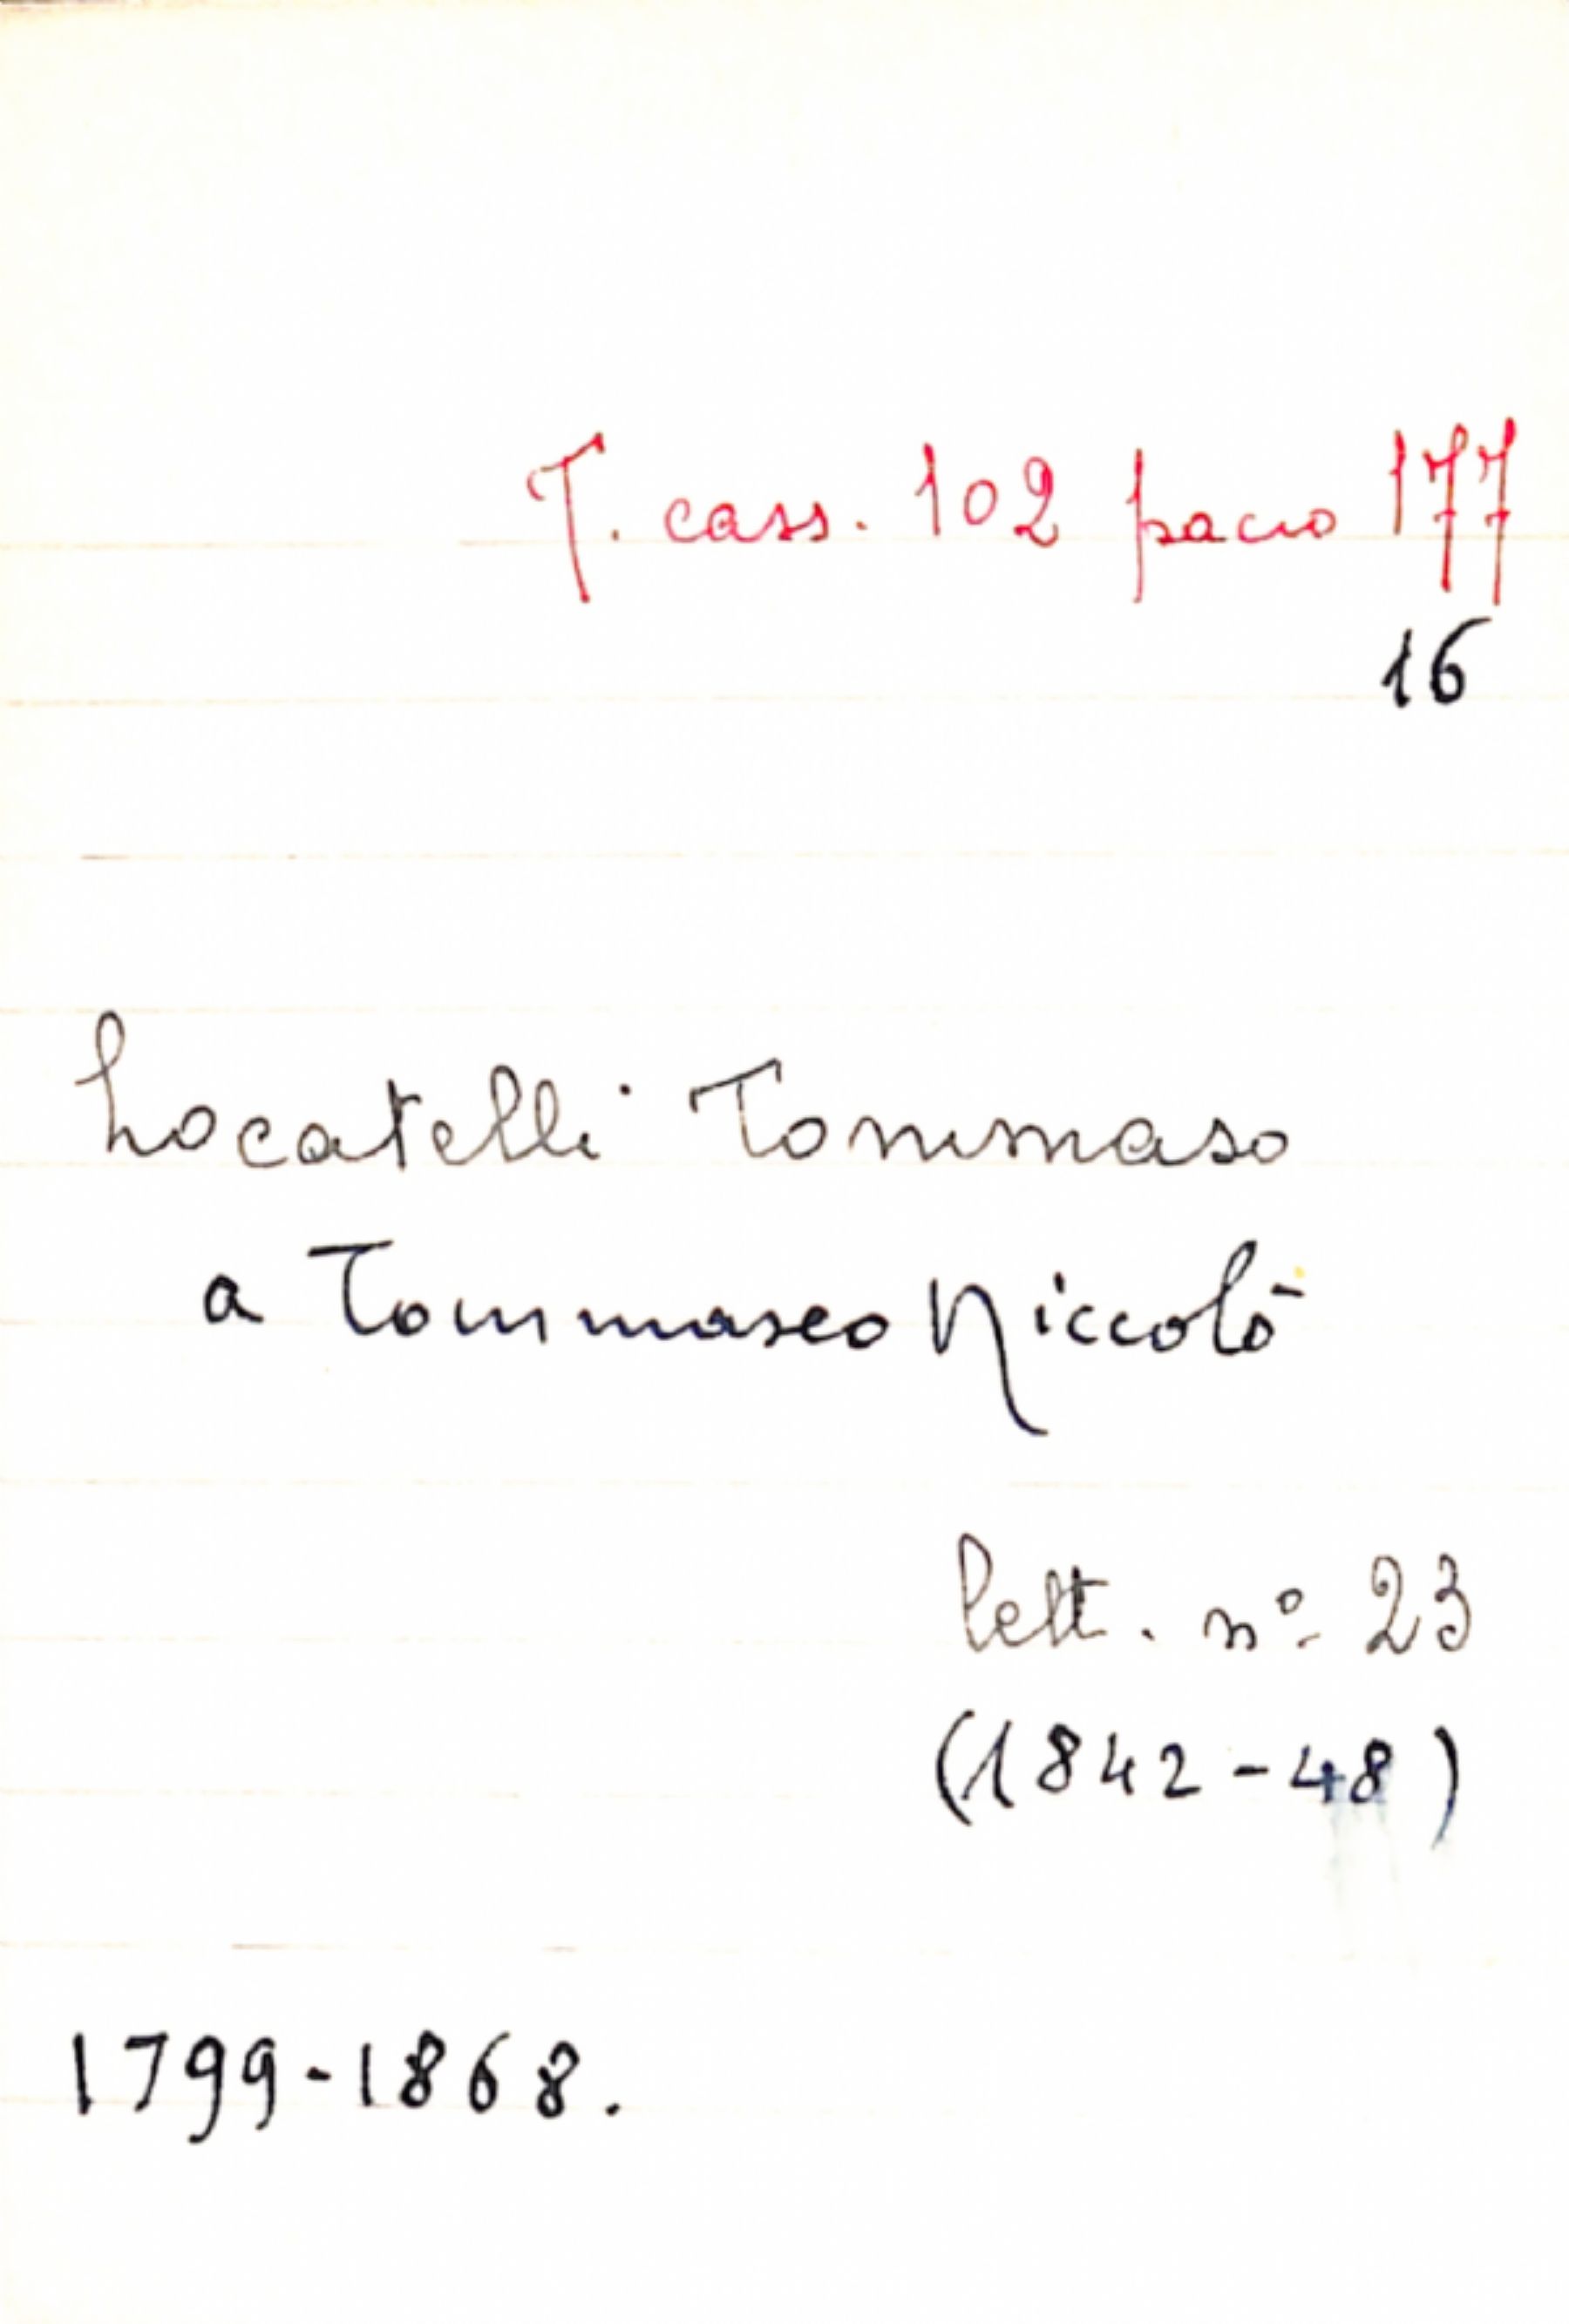 T. cass. 102 pacco 177
16
Locatelli Tommaso
a Tommaseo Niccolò
lett. nº 23
(1842-48)
1799-1868.